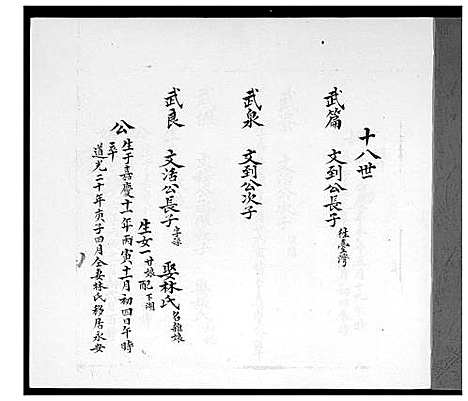 十八世
武篇 文到公長子 往臺灣
武泉 文到公次子
武良 文活公長子 娶林氏 名雖娘
生女一 廿娘 配下湖
公生于嘉慶十一年丙寅十一月初四日午時
卒
道光二十年庚子四月仝妻林氏移居永安